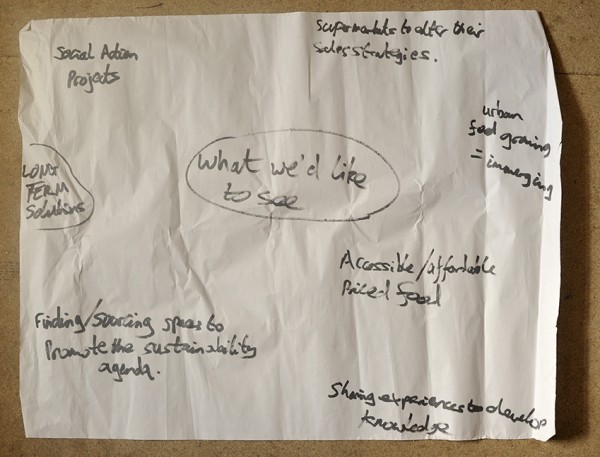 Social Action
Projects
Supermarkets to alter their
sales strategies.
urban
food growing
= immerging
What we'd like
to see
LONG
TERM
Solutions
Accessible/affordable
Priced food
Finding/sourcing spaces to
Promote the sustainability
agenda.
Sharing experiences to develop
knowledge